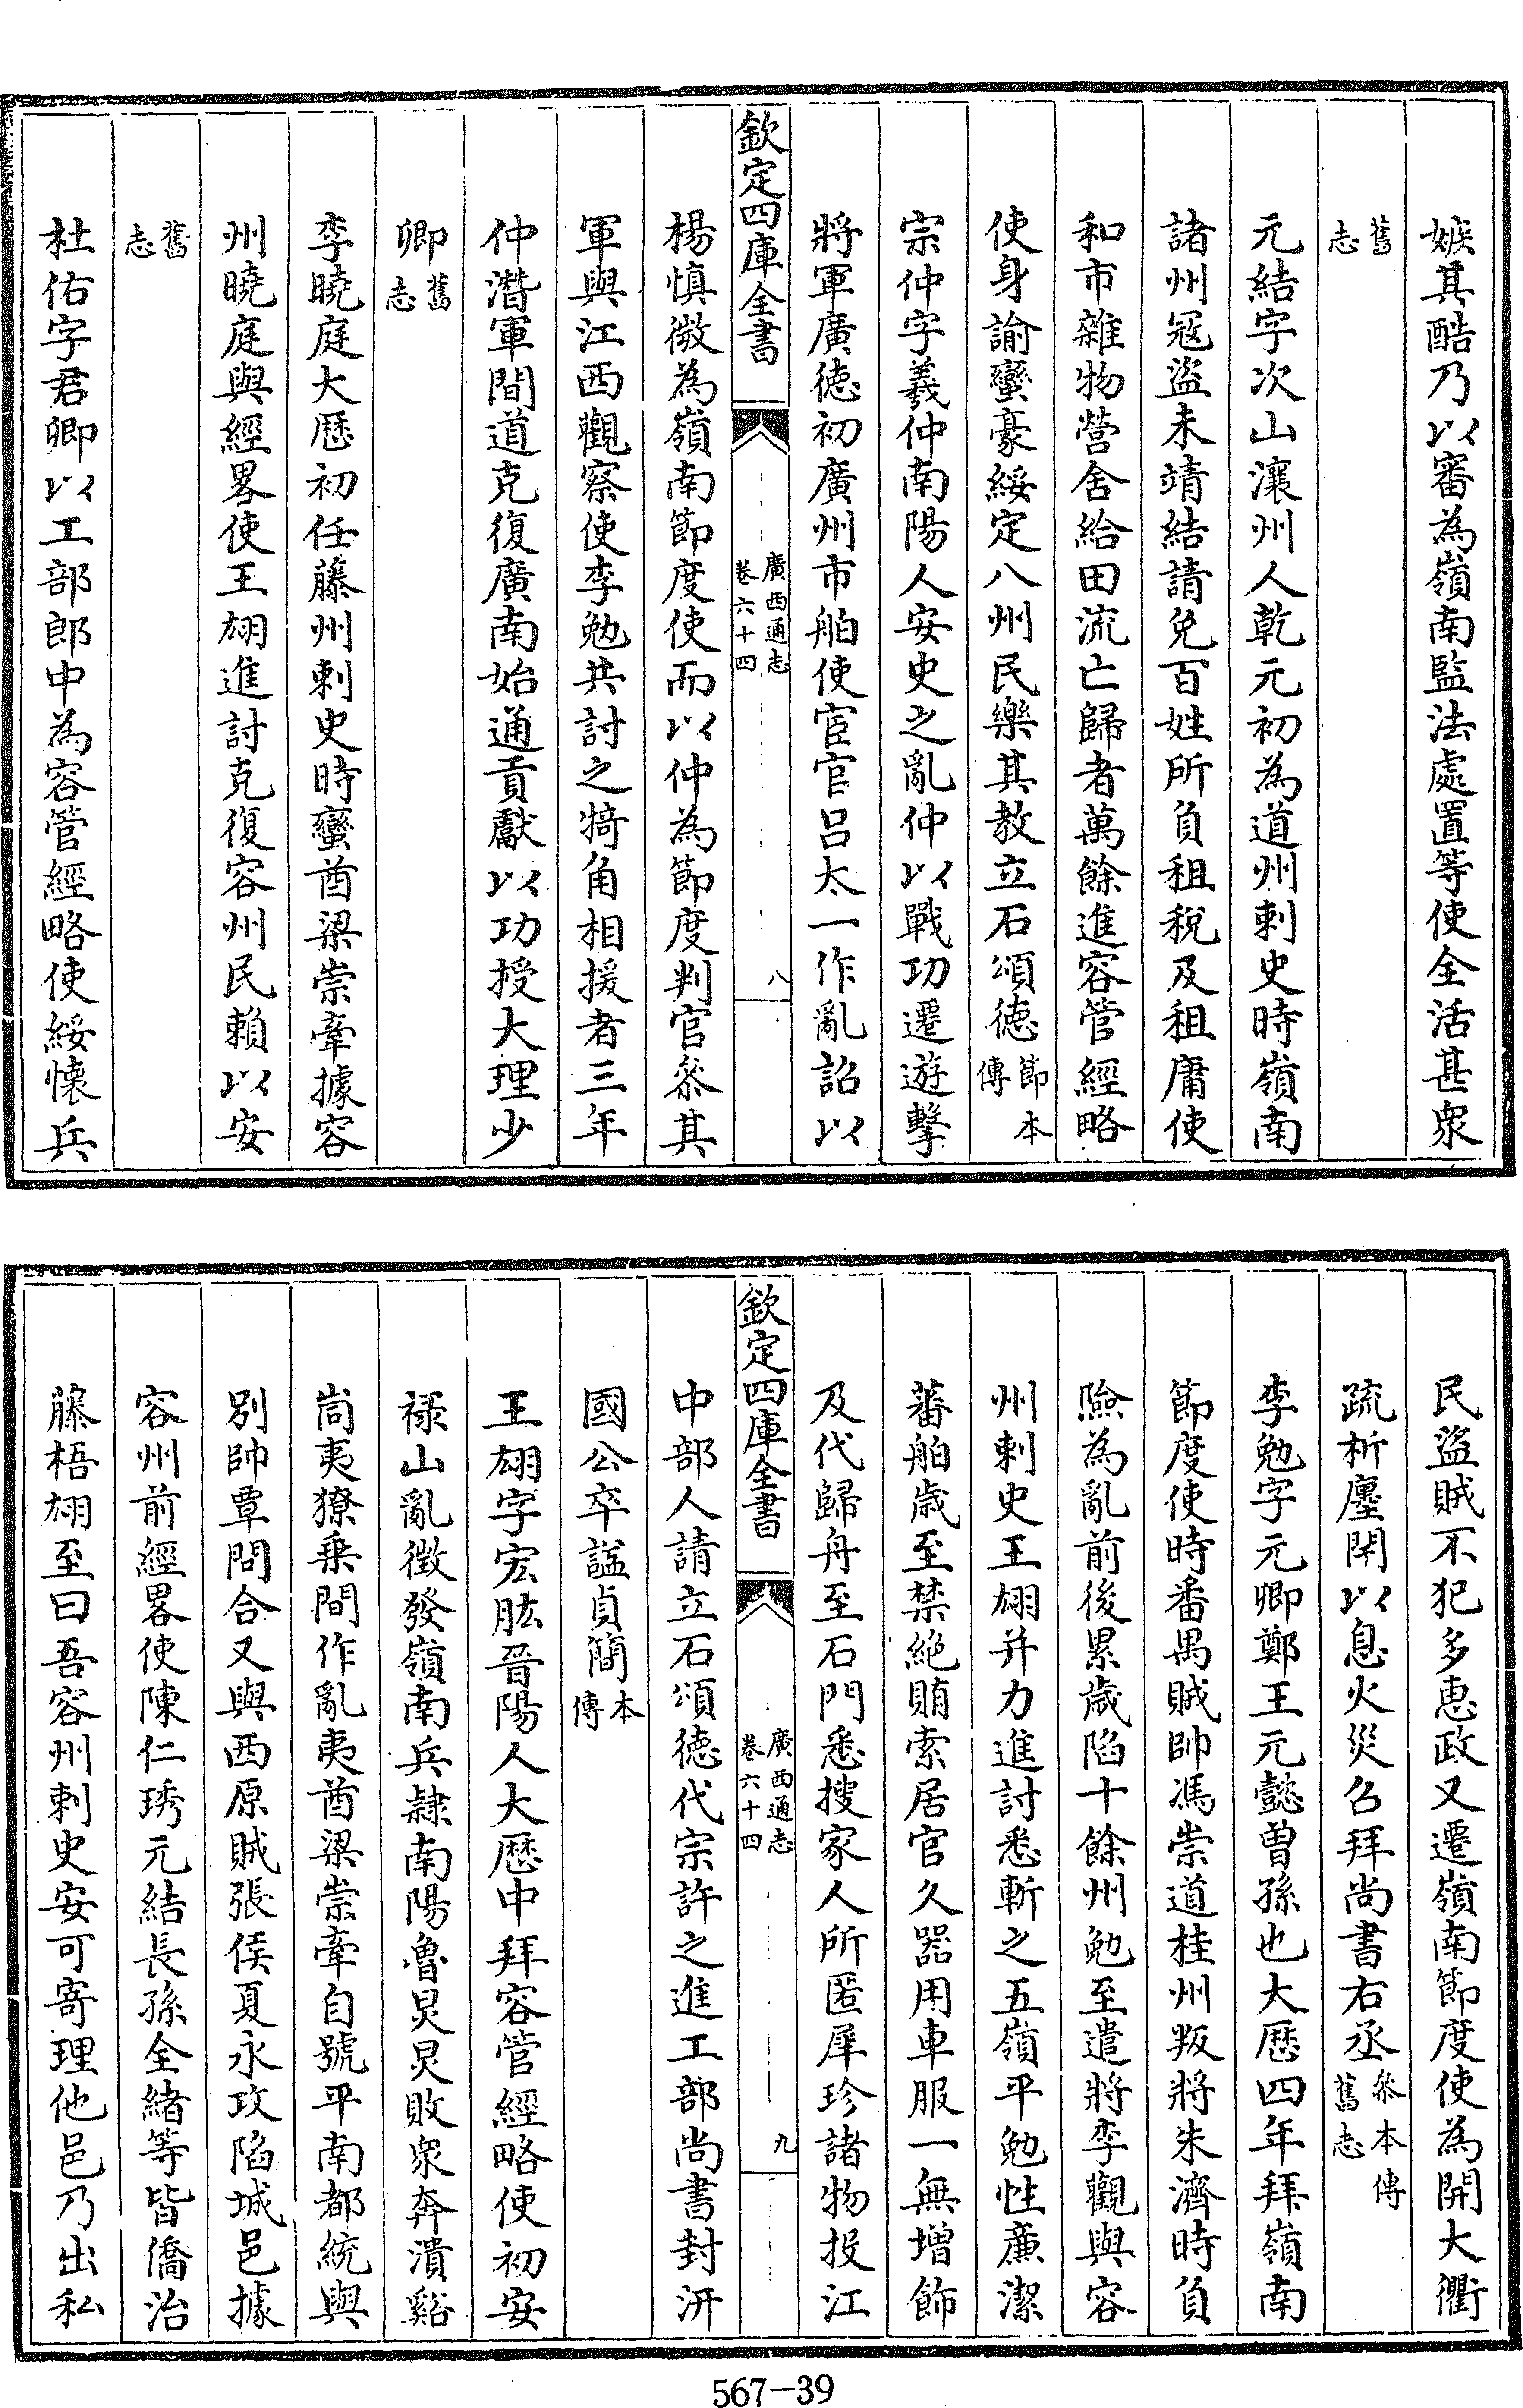 嫉其酷乃以審為嶺南監法處置等使全活甚衆
舊志
元結字次山瀼州人乾元初為道州刺史時嶺南
諸州冦盜未靖結請免百姓所負租稅及租庸使
和市雜物營舍給田流亡歸者萬餘進容管經略
使身諭蠻豪綏定八州民樂其教立石頌徳節本傳
宗仲字羲仲南陽人安史之亂仲以戰功遷遊擊
將軍廣徳初廣州市舶使宦官吕太一作亂詔以
欽定四庫全書
廣西通志
卷六十四
八
楊慎微為嶺南節度使而以仲為節度判官叅其
軍與江西觀察使李勉共討之犄角相援者三年
仲潛軍間道克復廣南始通貢獻以功授大理少
卿舊志
李曉庭大厯初任藤州刺史時蠻酋梁崇牽據容
州曉庭與經畧使王翃進討克復容州民賴以安
舊志
杜佑字君卿以工部郎中為容管經略使綏懐兵
民盜賊不犯多惠政又遷嶺南節度使為開大衢
疏析廛閈以息火災召拜尚書右丞叅本傳舊志
李勉字元卿鄭王元懿曽孫也大厯四年拜嶺南
節度使時番禺賊帥馮崇道桂州叛將朱濟時負
險為亂前後累歳陷十餘州勉至遣將李觀與容
州刺史王翃并力進討悉斬之五嶺平勉性亷潔
蕃舶歳至禁絶賄索居官久器用車服一無增飾
及代歸舟至石門悉搜家人所匿犀珍諸物投江
欽定四庫全書
廣西通志
卷六十四
九
中部人請立石頌徳代宗許之進工部尚書封汧
國公卒諡貞簡本傳
王翃字宏肱晉陽人大厯中拜容管經略使初安
禄山亂徴發嶺南兵隷南陽魯炅炅敗衆奔潰谿
峝夷獠乗間作亂夷酋梁崇牽自號平南都統與
别帥覃問合又與西原賊張侯夏永攻陷城邑據
容州前經畧使陳仁琇元結長孫全緒等皆僑治
藤梧翃至曰吾容州刺史安可寄理他邑乃出私
567-39